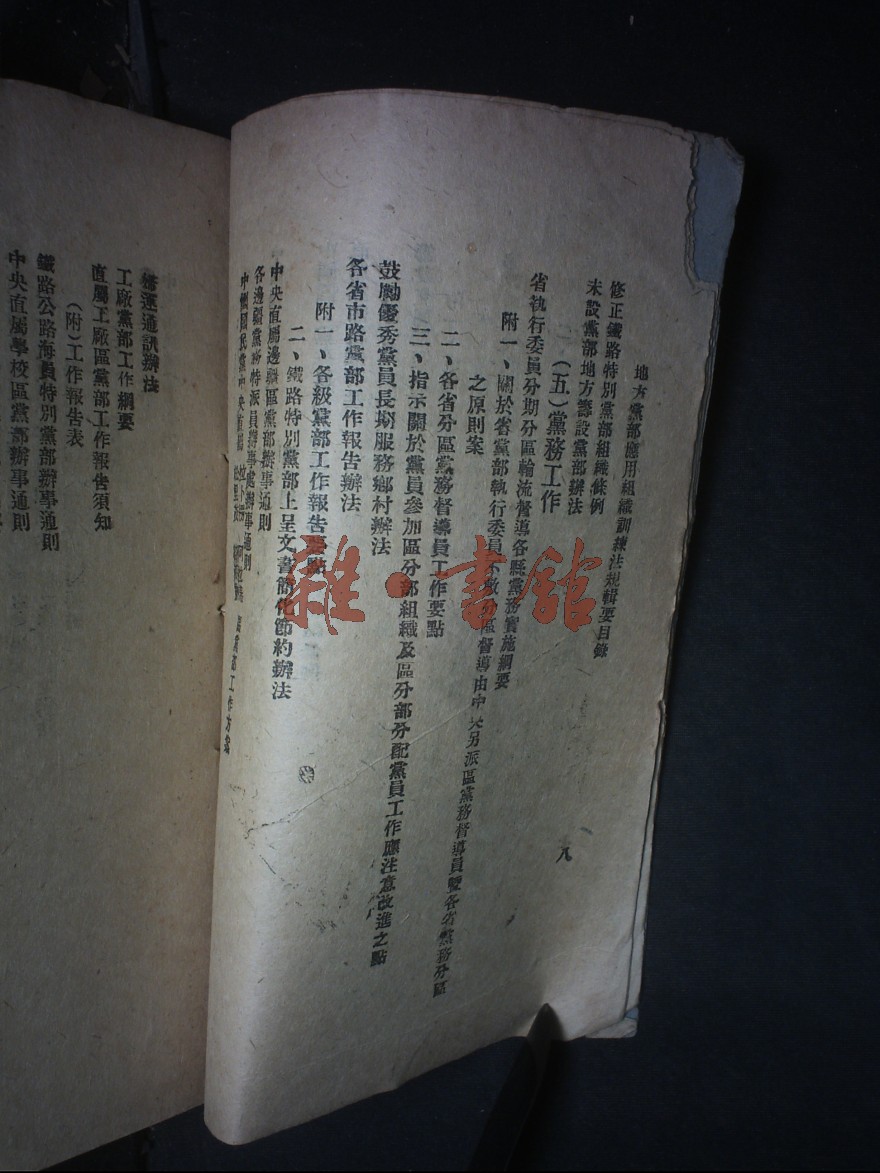 地方黨部應用組織訓練法規輯要目錄
八
修正鐵路特別黨部組織條例
未設黨部地方籌設黨部辦法
(五)黨務工作
省執行委員分期分區輪流督導各縣黨務實施綱要
附一、關於黨部執行委員不敷分區督導由中央另派區黨務督導員暨各省黨務分區
之原則案
二、各省分區黨務督導員工作要點
三、指示關於黨員參加區分部組織及區分部分配黨員工作應注意改進之點
鼓勵優秀黨員長期服務鄉村辦法
各省市路黨部工作報告辦法
附一、各級黨部工作報告要點
二、鐵路特別黨部上呈文書簡化節約辦法
中央直屬邊疆區黨部辦事通則
各邊疆黨務特派員辦事處辦事通則
中國國民黨中央直屬 黨部工作方案
通訊辦法
工廠黨部工作綱要
直屬工廠區黨部工作報告須知
(附)工作報告表
鐵路公路海員特別黨部辦事通則
中央直屬學校區黨部辦事通則
雜·書館